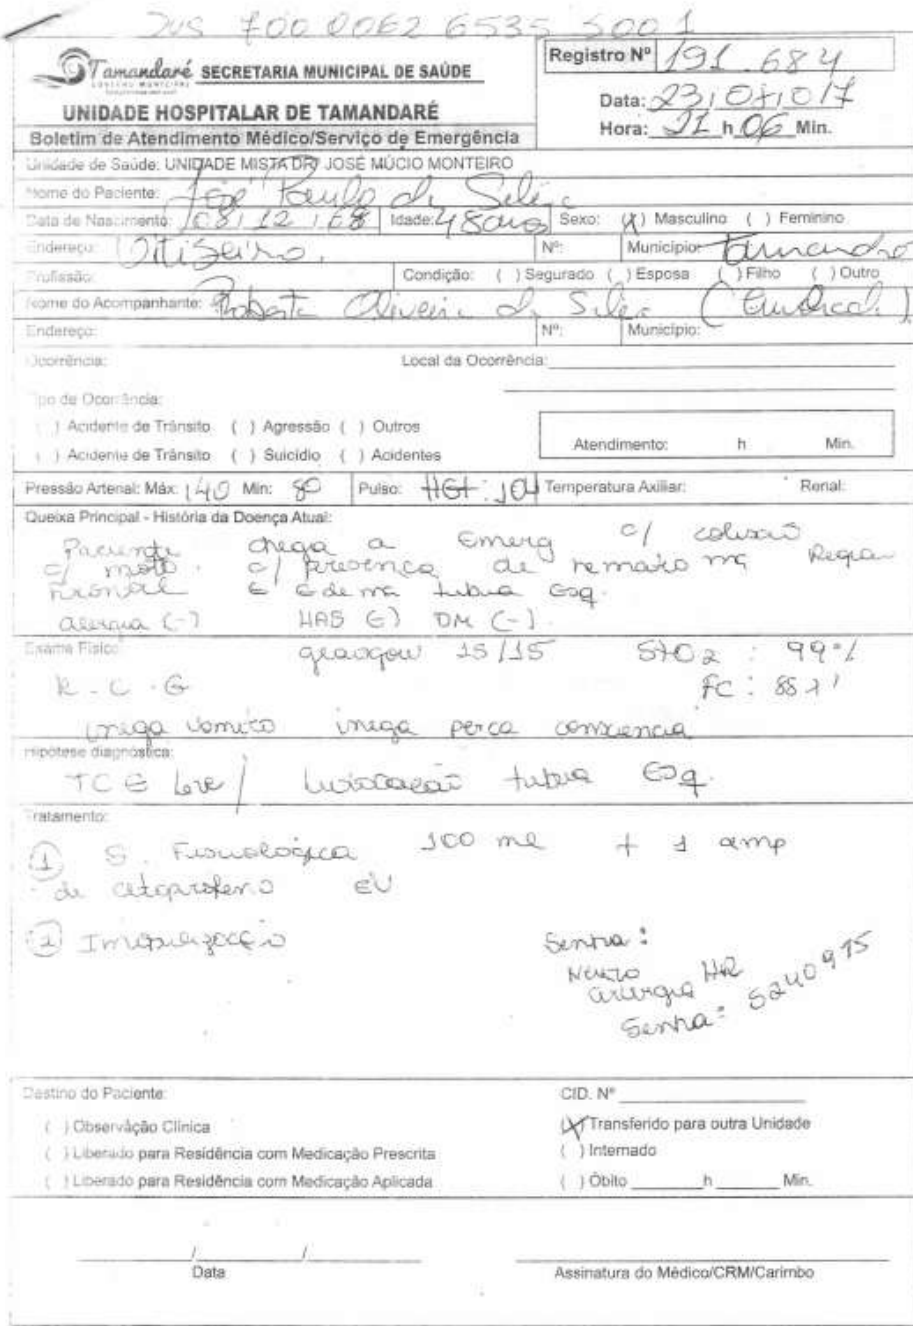 SUS 700 0062 6535 5001
Tamandaré SECRETARIA MUNICIPAL DE SAÚDE
GOVERNO MUNICIPAL
Registro Nº 191.684
UNIDADE HOSPITALAR DE TAMANDARÉ
Data: 23/07/017
Boletim de Atendimento Médico/Serviço de Emergência
Hora: 21 h 06 Min.
Unidade de Saúde: UNIDADE MISTA DR JOSÉ MÚCIO MONTEIRO
Nome do Paciente: José Paulo da Silva
Data de Nascimento: 08/12/68 Idade: 48 anos Sexo: (X) Masculino ( ) Feminino
Endereço: Oitizeiro. Nº: Município:
Profissão: Condição: ( ) Segurado ( ) Esposa ( ) Filho ( ) Outro
Nome do Acompanhante: Roberta Oliveira da Silva
Endereço: Nº: Município:
Ocorrência: Local da Ocorrência:
Tipo de Ocorrência:
( ) Acidente de Trânsito ( ) Agressão ( ) Outros
( ) Acidente de Trânsito ( ) Suicídio ( ) Acidentes
Atendimento: h Min.
Pressão Arterial: Máx: 140 Min: 80 Pulso: HGT: 104 Temperatura Axiliar: Renal:
Queixa Principal - História da Doença Atual:
Paciente chega a Emerg c/ colisão
c/ moto. c/ presença de hemato na Região
frontal E Edema tibia Esq.
alergia (-) HAS (-) DM (-).
Exame Físico: glasgow 15/15 STO2: 99%
R.C.G FC: 88
inega vomito inega perca consciencia
Hipótese diagnóstica:
TCE leve / luxocação tibia Esq.
Tratamento:
1 S. Fisiológica 100 ml + 1 amp
de cetoprofeno EV
2 Imobilização
Senha:
Neuro
cirurgia HR
Senha: 5240975
Destino do Paciente: CID. Nº
( ) Observação Clínica (X) Transferido para outra Unidade
( ) Liberado para Residência com Medicação Prescrita ( ) Internado
( ) Liberado para Residência com Medicação Aplicada ( ) Óbito h Min.
Data Assinatura do Médico/CRM/Carimbo